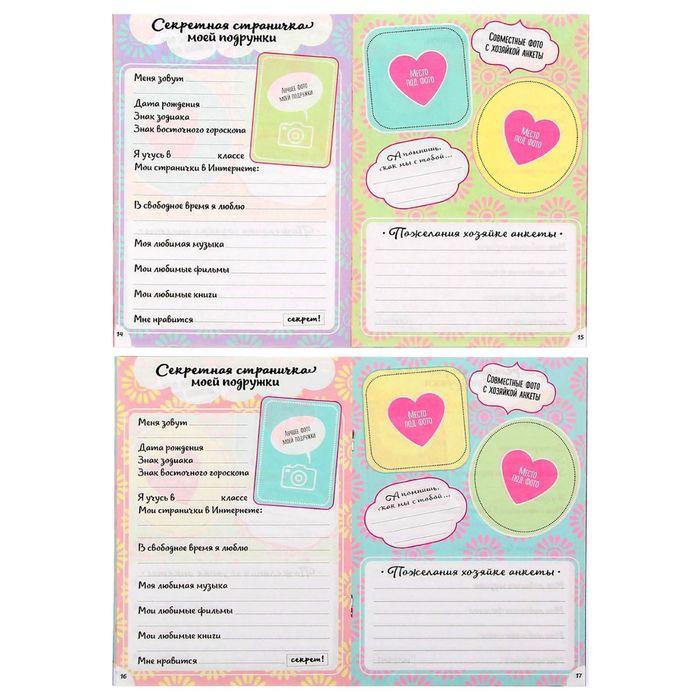 Секретная страничка
моей подружки
Меня зовут
Лучшее фото
моей подружки
Дата рождения
Знак зодиака
Знак восточного гороскопа
Я учусь в классе
Мои странички в Интернете:
В свободное время я люблю
Моя любимая музыка
Мои любимые фильмы
Мои любимые книги
Мне нравится
секрет!
14
Совместные фото
с хозяйкой анкеты
Место
под фото
Место
под фото
А помнишь,
как мы с тобой...
• Пожелания хозяйке анкеты •
15
Секретная страничка
моей подружки
Меня зовут
Лучшее фото
моей подружки
Дата рождения
Знак зодиака
Знак восточного гороскопа
Я учусь в классе
Мои странички в Интернете:
В свободное время я люблю
Моя любимая музыка
Мои любимые фильмы
Мои любимые книги
Мне нравится
секрет!
16
Совместные фото
с хозяйкой анкеты
Место
под фото
Место
под фото
А помнишь,
как мы с тобой...
• Пожелания хозяйке анкеты •
17